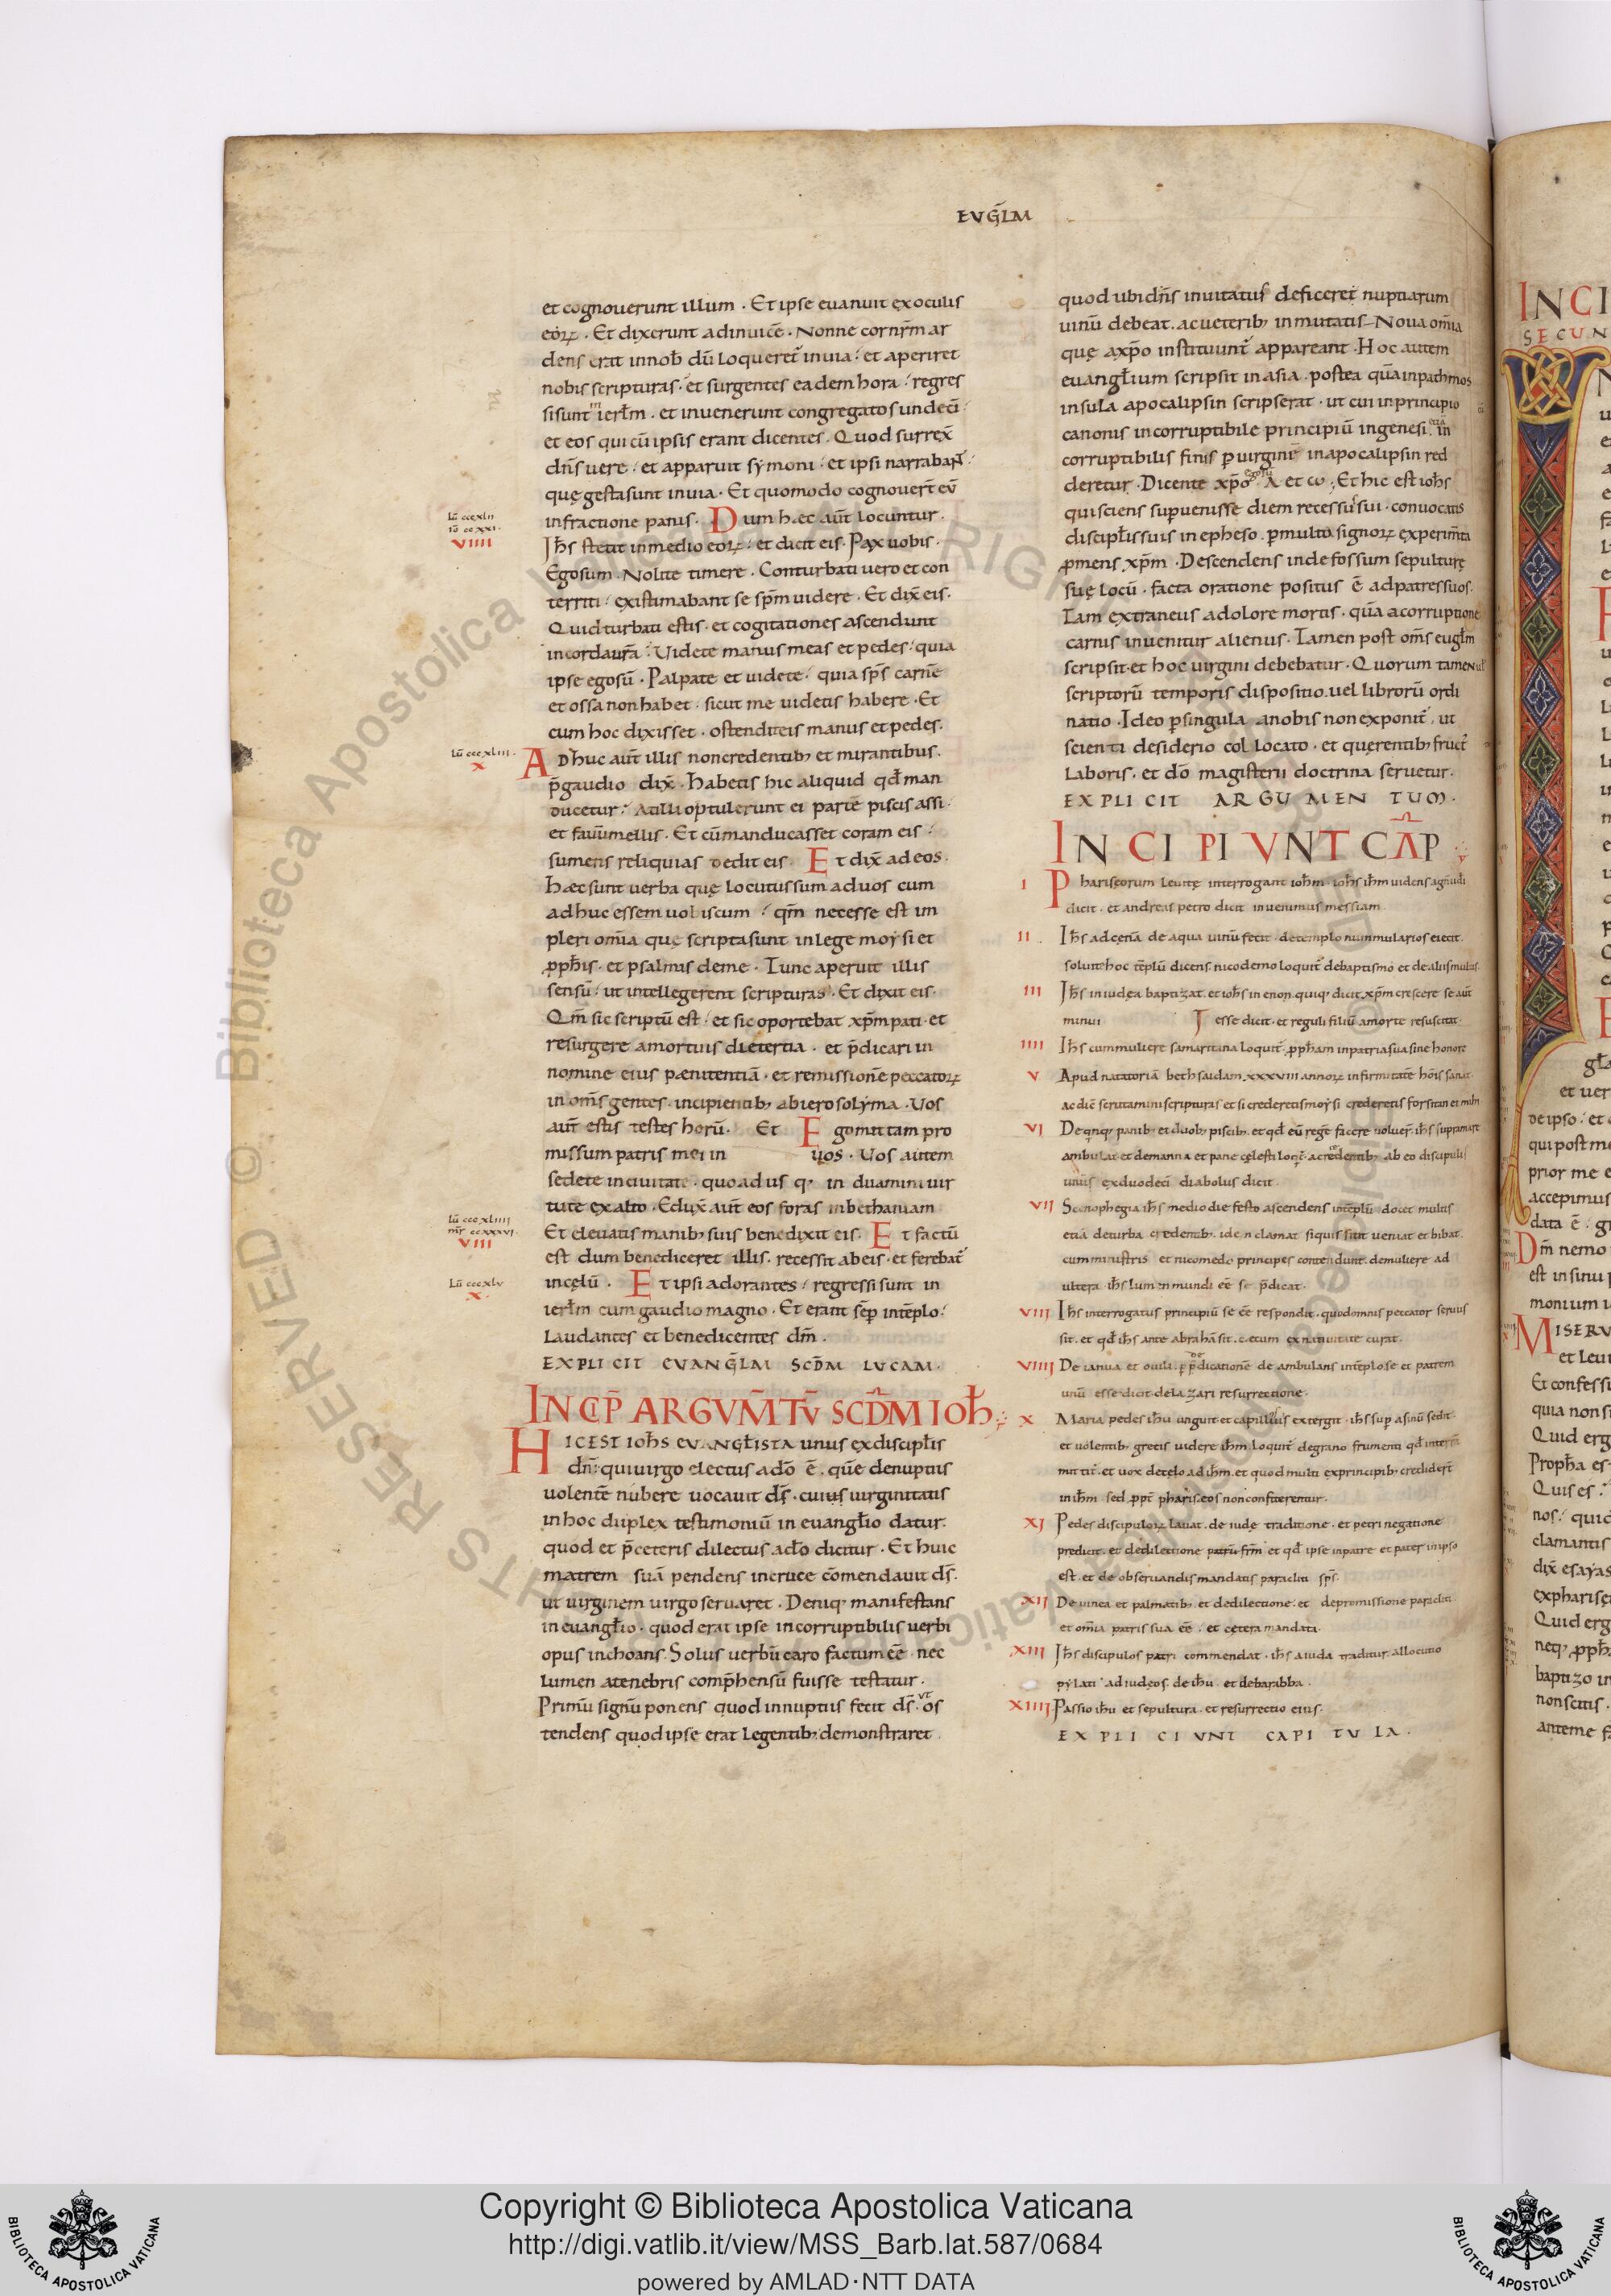 EVG̅L̅M
et cognouerunt illum · Et ipse euanuit ex oculis
eoꝝ · Et dixerunt adinuicē · Nonne cor nr̄m ar
dens erat in nob̄ dū loqueret̄ inuia · et aperiret
nobis scripturas · et surgentes eadem hora · regres
si sunt in ierl̄m · et inuenerunt congregatos undeci
et eos qui cū ipsis erant dicentes · Quod surrex̄
dn̄s uere · et apparuit symoni · et ipsi narrabant̄
quę gesta sunt inuia · Et quomodo cognouer̄t eū
infractione panis · Dum hæc aut̄ locuntur ·
Jh̄s stetit inmedio eoꝝ · et dicit eis · Pax uobis ·
Ego sum · Nolite timere · Conturbati uero et con
territi · existimabant se sp̄m uidere · Et dix̄ eis ·
Quid turbati estis · et cogitationes ascendunt
incorda ur̄a · Uidete manus meas et pedes · quia
ipse ego sū · Palpate et uidete · quia sp̄s carnē
et ossa non habet · sicut me uidetis habere · Et
cum hoc dixisset · ostendit eis manus et pedes ·
Adhuc aut̄ illis noncredentib; et mirantibus ·
p̄gaudio dix̄ · habetis hic aliquid qd̄ man
ducetur · At illi optulerunt ei partē piscis assi ·
et fauū mellis · Et cū manducasset coram eis ·
sumens reliquias dedit eis · Et dix̄ ad eos ·
hæc sunt uerba quę locutus sum ad uos cum
adhuc essem uobiscum · qm̄ necesse est im
pleri om̄ia quę scripta sunt in lege moysi et
ꝓph̄is · et psalmis deme · Tunc aperuit illis
sensū · ut intellegerent scripturas · Et dixit eis ·
Qm̄ sic scriptū est · et sic oportebat xp̄m pati · et
resurgere amortuis die tertia · et p̄dicari in
nomine eius pænitentiā · et remissionē peccatoꝝ
in om̄s gentes · incipientib; abierosolyma · Uos
aut̄ estis testes horū · Et Ego mittam pro
missum patris mei in uos · Uos autem
sedete in ciuitate · quo ad usq; in duamini uir
tute ex alto · Edux̄ aut̄ eos foras in bethaniam
Et eleuatis manib; suis benedixit eis · Et factū
est dum benediceret illis · recessit ab eis · et ferebat̄
in cęlū · Et ipsi adorantes · regressi sunt in
ierl̄m cum gaudio magno · Et erant semp̄ in tēplo ·
Laudantes et benedicentes dm̄ ·
EXPLICIT EVANG̅LM SCD̅M LUCAM ·
INCP̅ ARGVM̅TV̅ SCD̅M IOH̅
HIC EST IOH̅S EVANGL̅ISTA unus ex discipl̄is
dn̄i · qui uirgo electus ad̄o ē · quē denuptiis
uolentē nubere uocauit ds̄ · cuius uirginitatis
in hoc duplex testimoniū in euangl̄io datur ·
quod et p̄ceteris dilectus ad̄o dicitur · Et huic
matrem suā pendens incruce cōmendauit ds̄ ·
ut uirginem uirgo seruaret · Deniq; manifestans
in euangl̄io · quod erat ipse incorruptibilis uerbi
opus inchoans · Solus uerbū caro factum eē̄ · nec
lumen atenebris comp̄hensū fuisse testatur ·
Primū signū ponens quod in nuptiis fecit ds̄ · ut os
tendens quod ipse erat legentib; demonstraret ·
lū cccxlii
iō ccxxi ·
VIIII
lū cccxliii ·
X
lū cccxliiii
mr̄ ccxxxvi ·
VIII
Lū cccxlv
X ·
quod ubi dn̄s inuitatus deficeret nuptiarum
uinū debeat · ac ueterib; inmutatis · Noua om̄ia
quę axp̄o instituunt̄ appareant · Hoc autem
euangl̄ium scripsit in asia · postea quā inpathmos
insula apocalipsin scripserat · ut cui inprincipio
canonis incorruptibile principiū ingenesi · etiā in
corruptibilis finis ꝑ uirginē in apocalipsin red
deretur · Dicente xp̄o ego sū A et ω · Et hic est ioh̄s
qui sciens supuenisse diem recessus sui · conuocatis
discipl̄is suis in epheso · ꝑ multa signoꝝ experim̄ta
ꝓmens xp̄m · Descendens inde fossum sepulturę
suę locū · facta oratione positus ē adpatres suos ·
Tam extraneus adolore mortis · quā acorruptione
carnis inuenitur alienus · Tamen post om̄s eugl̄m
scripsit · et hoc uirgini debebatur · Quorum tamen ul
scriptorū temporis dispositio · uel librorū ordi
natio · Ideo ꝑ singula anobis non exponit̄ · ut
scienti desiderio collocato · et querentib; fruct̄
laboris · et dō magisterii doctrina seruetur ·
EXPLICIT ARGUMENTUM ·
INCIPIVNT CAP̅
I Phariseorum leuitę interrogant ioh̄m · ioh̄s ih̄m uidens agnū dī
dicit · et andreas petro dicit inuenimus messiam
II Ih̄s ad cęnā de aqua uinū fecit · detemplo nummularios eiecit ·
soluite hoc tēplū dicens · nicodemo loquit̄ debaptismo et dealiis multis ·
III Ih̄s in iudęa baptizat · et ioh̄s in enon · quiq; dicit xp̄m crescere se aut̄
minui esse dicit · et reguli filiū amorte resuscitat ·
IIII Ih̄s cum muliere samaritina loquit̄ · ꝓph̄am inpatria sua sine honore
V Apud natatoriā bethsaidam xxxviii annoꝝ infirmitatē hōis sanat ·
ac dic̄ scrutamini scripturas et si crederetis moysi crederetis forsitan et mihi
VI De qnq; panib; et duob; piscib; et qd̄ eū regē facere uoluer̄ · ih̄s supra mare
ambulat et de manna et pane cęlesti loqt̄ · acredentib; ab eo discipuli
unus ex duodecī diabolus dicit ·
VII Scenophegia ih̄s medio die festo ascendens in tēplū docet multis
etiā deturba credentib; idē clamat siquis sitit ueniat et bibat ·
cum ministris et nicomedo principes contendunt · demuliere ad
ultera ih̄s lumen mundi eē̄ se p̄dicat ·
VIII Ih̄s interrogatus principiū se eē̄ respondit · quod omnis peccator seruus
sit · et qd̄ ih̄s ante abrahā sit · cęcum ex natiuitate curat ·
VIIII De ianua et ouili · p̄dicationē de ambulans in tēplo se et patrem
unū esse dicit · de lazari resurrectione ·
X Maria pedes ih̄u unguit et capillis extergit · ih̄s sup̄ asinū sedit ·
et uolentib; grecis uidere ih̄m loquit̄ degrano frumenti qd̄ interrā
mittit̄ · et uox decęlo ad ih̄m · et quod multi ex principib; credider̄t
in ih̄m sed ꝓpt̄ phariseos non confiterentur ·
XI Pedes discipuloꝝ lauat · de iudę traditione · et petri negatione
predicit · et dedilectione patrū frm̄ et qd̄ ipse inpatre et pater in ipso
est · et de obseruandis mandatis paracliti sp̄s ·
XII De uinea et palmitib; et dedilectione · et depromissione paracliti
et om̄ia patris sua eē̄ · et cetera mandata ·
XIII Ih̄s discipulos patri commendat · ih̄s a iuda traditur · allocutio
pylati ad iudęos · de ih̄u et debarabba ·
XIIII Passio ih̄u et sepultura · et resurrectio eius ·
EXPLICIUNT CAPITULA ·
INCI
SECUN
et uer
de ipso · et
qui post me
prior me e
accepimus
data ē · gr
Dm̄ nemo
est in sinu
monium
MISERV
et leui
Et confessu
quia non s
Quid erg
Proph̄a es
Quis es ·
nos · quid
clamantis
dix̄ esayas
ex pharisę
Quid erg
neq; ꝓph̄
baptizo in
non scitis ·
ante me f
© Biblioteca Apostolica Vaticana
RIGHTS RESERVED
Copyright © Biblioteca Apostolica Vaticana
http://digi.vatlib.it/view/MSS_Barb.lat.587/0684
powered by AMLAD·NTT DATA
BIBLIOTECA APOSTOLICA VATICANA
BIBLIOTECA APOSTOLICA VATICANA